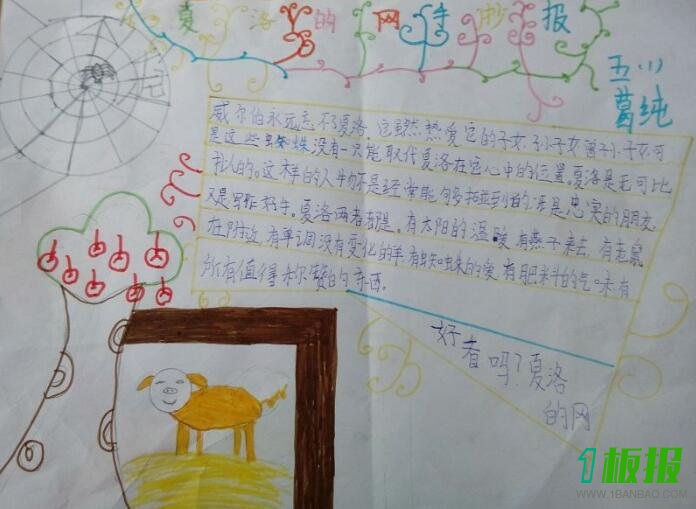 夏洛的网手抄报
五(1)
葛纯
威尔伯永远忘不了夏洛,它虽然热爱它的子女、孙子女、曾孙子女,可
是这些蜘蛛没有一只能取代夏洛在它心中的位置。夏洛是无可比
拟的。这样的人物不是经常能够碰到的:既是忠实的朋友,
又是写作好手。夏洛两者都是。有太阳的温暖 有燕子来去,有老鼠
在附近,有单调没有变化的羊 有蜘蛛的爱 有肥料的气味 有
所有值得称赞的东西。
好看吗?夏洛
的网
1板报
WWW.1BANBAO.COM